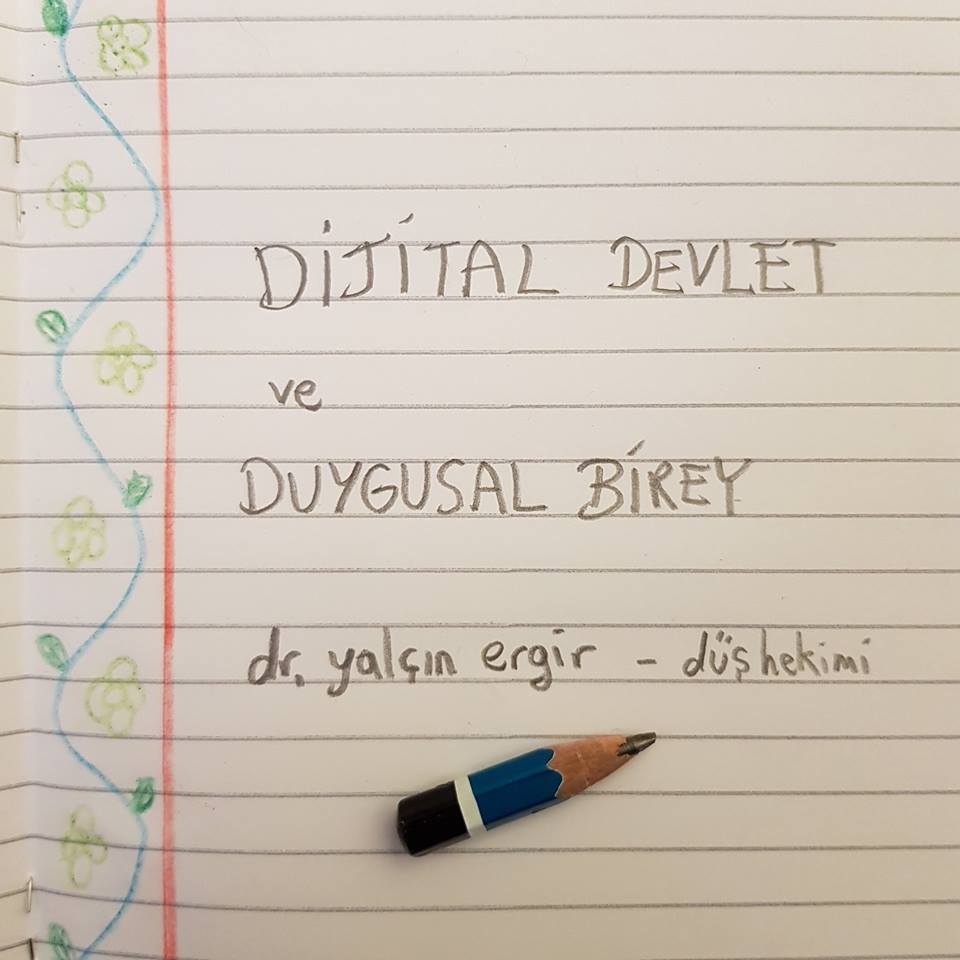 DİJİTAL DEVLET
ve
DUYGUSAL BİREY
dr. yalçın ergir - düşhekimi